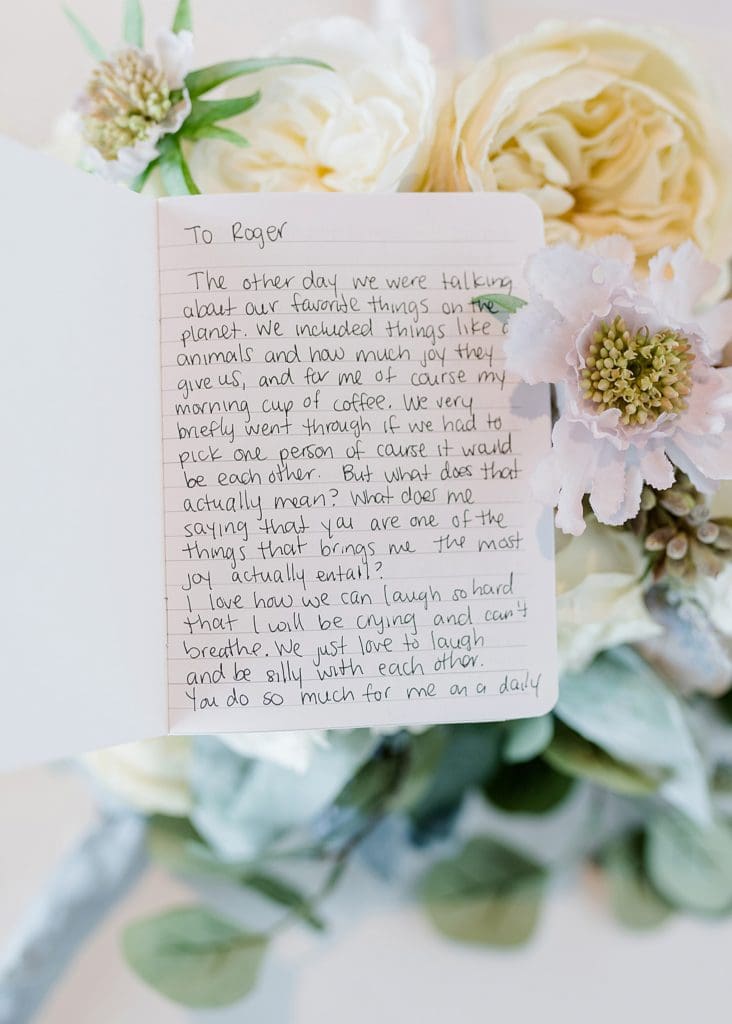 To Roger
The other day we were talking
about our favorite things on the
planet. We included things like
animals and how much joy they
give us, and for me of course my
morning cup of coffee. We very
briefly went through if we had to
pick one person of course it would
be each other. But what does that
actually mean? What does me
saying that you are one of the
things that brings me the most
joy actually entail?
I love how we can laugh so hard
that I will be crying and can't
breathe. We just love to laugh
and be silly with each other.
You do so much for me on a daily